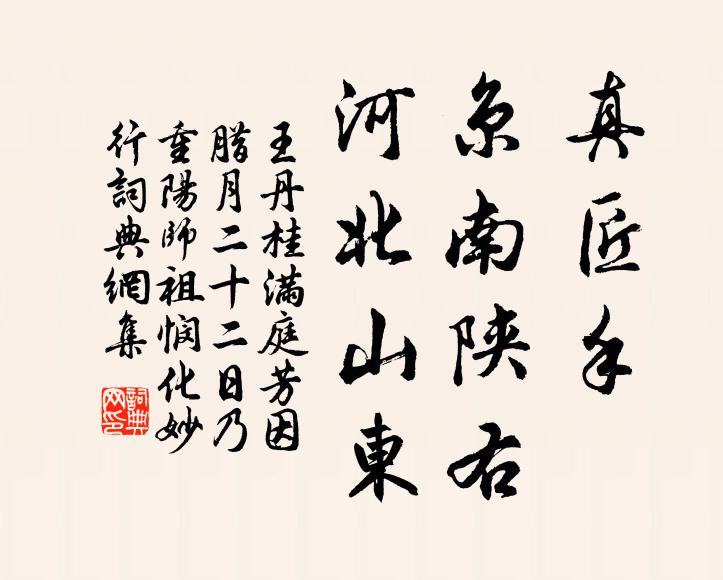 真匠手
京南陝右
河北山東
王丹桂滿庭芳因
腊月二十二日乃
重陽師祖憫化妙
行詞典網集
詞典
网印